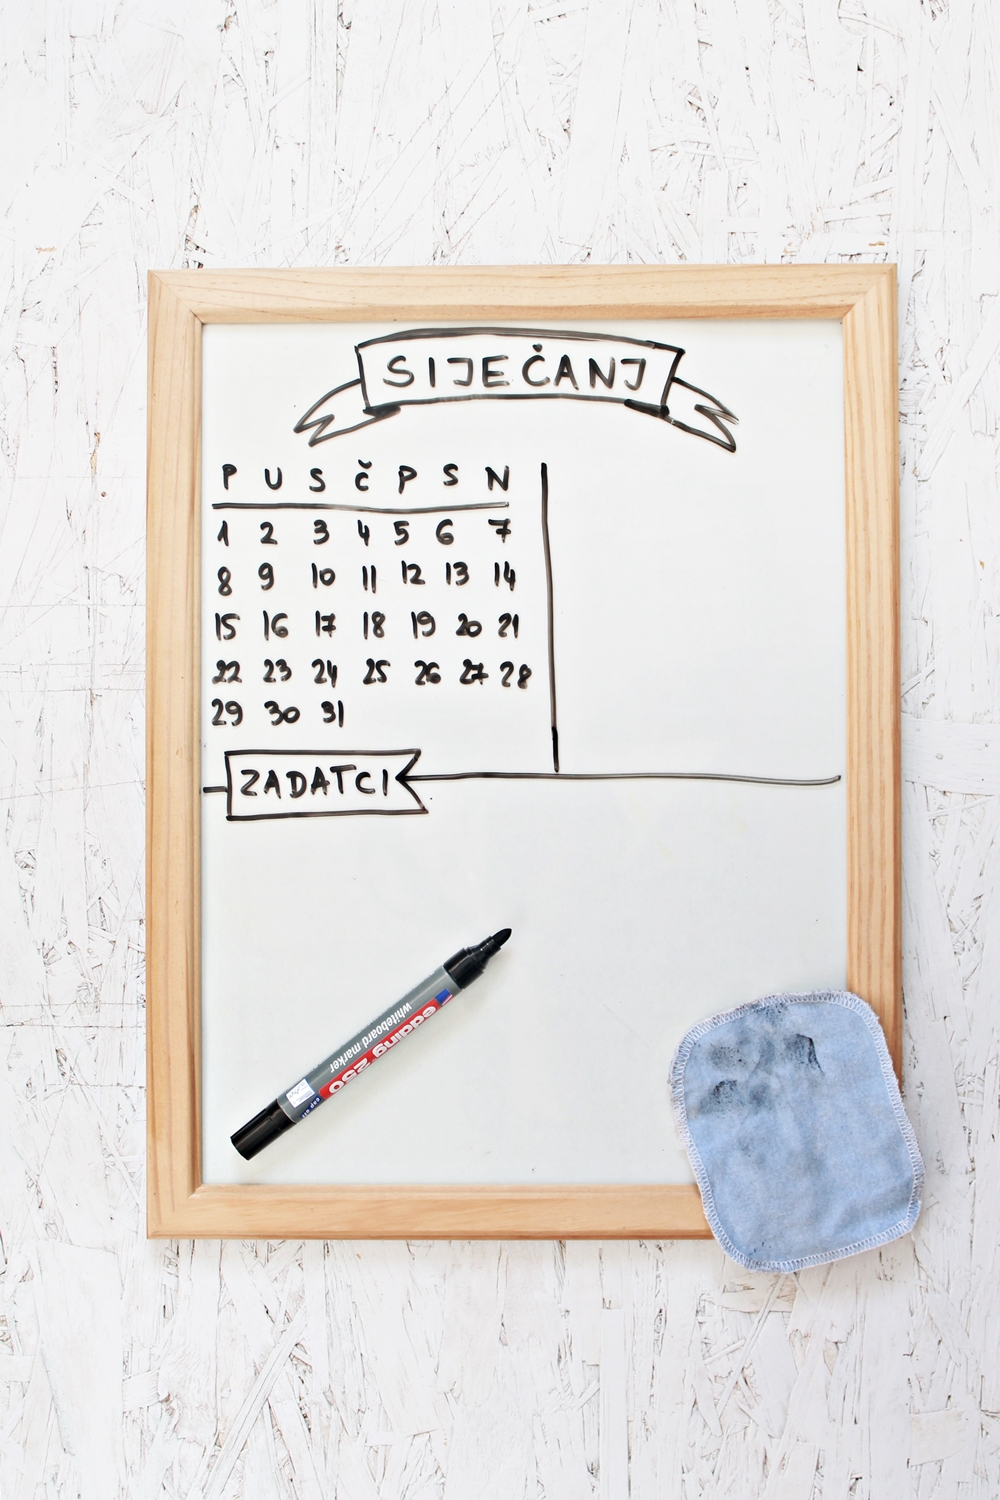 SIJEČANJ
P U S Č P S N
1 2 3 4 5 6 7
8 9 10 11 12 13 14
15 16 17 18 19 20 21
22 23 24 25 26 27 28
29 30 31
ZADATCI
edding 250
whiteboard marker